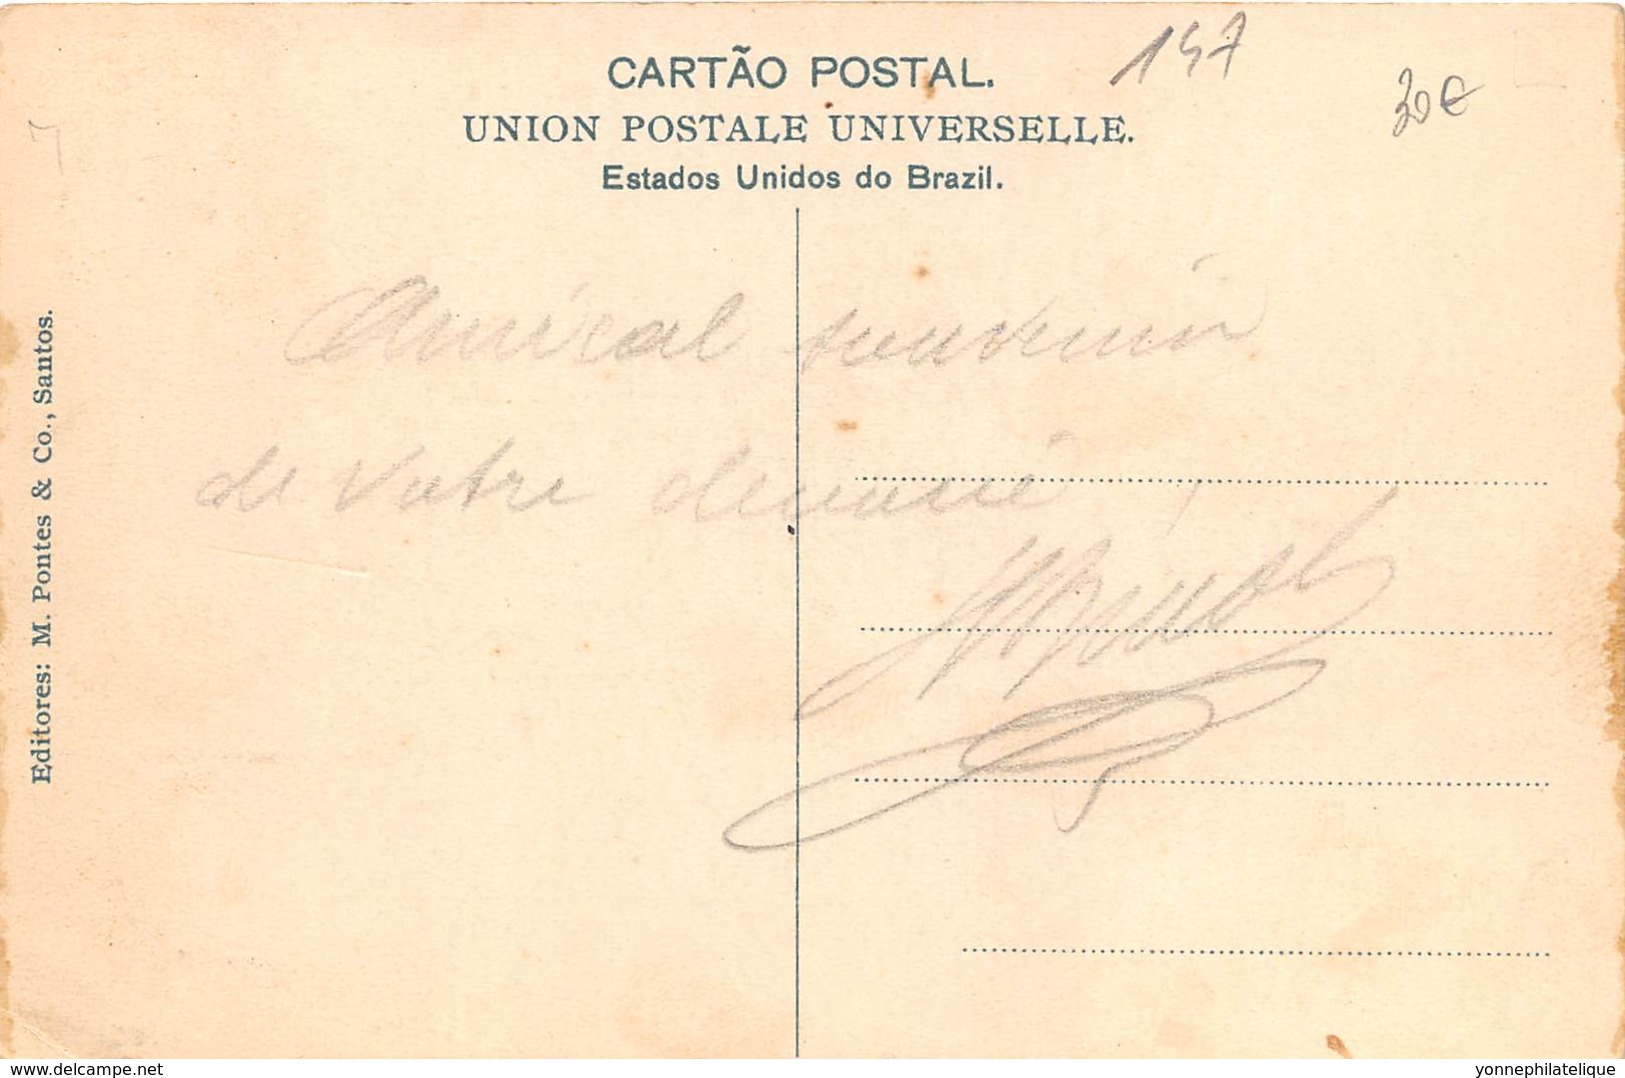 147
30€
CARTÃO POSTAL.
UNION POSTALE UNIVERSELLE.
Estados Unidos do Brazil.
Editores: M. Pontes & Co., Santos.
Amical souvenir
de votre dévoué
delcampe.net
yonnephilatelique